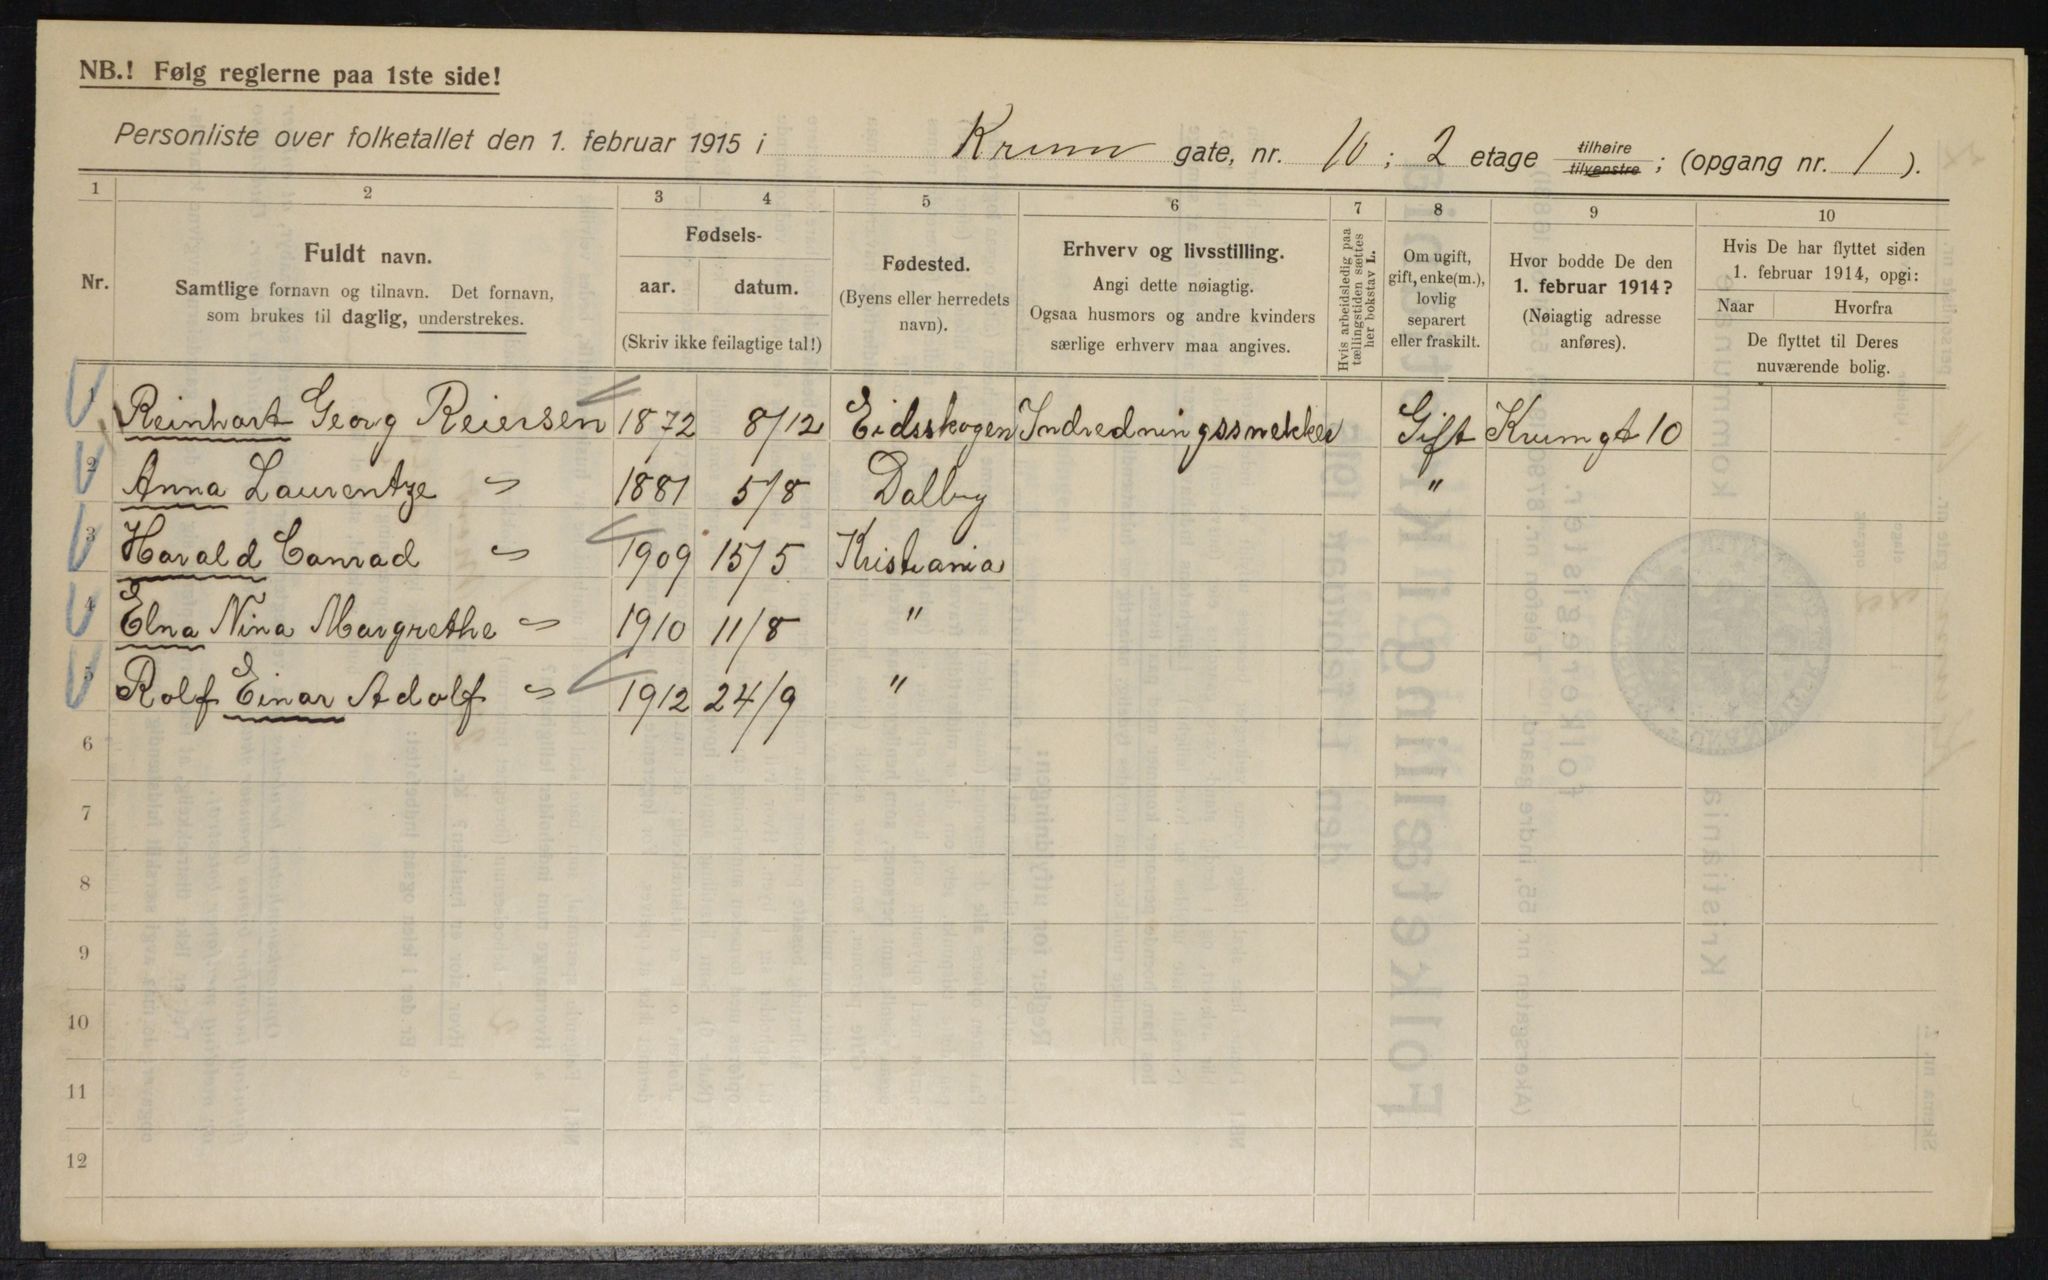 NB.! Følg reglerne paa 1ste side!
Personliste over folketallet den 1. februar 1915 i Krum gate, nr. 10; 2 etage tilhøire tilvenstre; (opgang nr. 1).
1 2 3 4 5 6 7 8 9 10
Nr.
Fuldt navn.
Samtlige fornavn og tilnavn. Det fornavn,
som brukes til daglig, understrekes.
Fødsels-
aar. datum.
(Skriv ikke feilagtige tal!)
Fødested.
(Byens eller herredets
navn).
Erhverv og livsstilling.
Angi dette nøiagtig.
Ogsaa husmors og andre kvinders
særlige erhverv maa angives.
Hvis arbeidsledig paa
tællingstiden sættes
her bokstav L.
Om ugift,
gift, enke(m.),
lovlig
separert
eller fraskilt.
Hvor bodde De den
1. februar 1914?
(Nøiagtig adresse
anføres).
Hvis De har flyttet siden
1. februar 1914, opgi:
Naar Hvorfra
De flyttet til Deres
nuværende bolig.
1 Reinhart Georg Reiersen 1872 8/12 Eidsskogen Indredningssnekker Gift Krumgt 10
2 Anna Laurentze " 1881 5/8 Dalby "
3 Harald Conrad " 1909 15/5 Kristiania
4 Elna Nina Margrethe " 1910 11/8 "
5 Rolf Einar Adolf " 1912 24/9 "
6
7
8
9
10
11
12